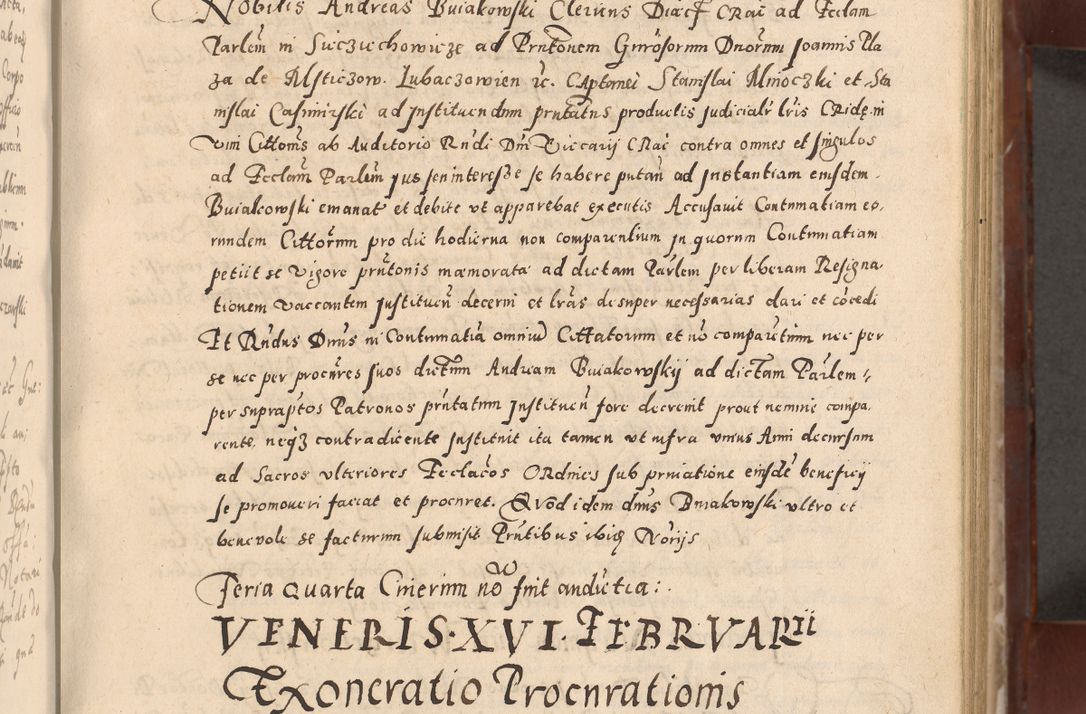 Nobilis Andreas Buiakowski Clericus Diæc CRac ad Ecclam
Parlem in Siecziechowicze ad Prntonem Gnrosorum Dnorum Joannis Pla
za de Msticzow. Lubaczowien &c. CAptanei Stanislai Mnioczki et Sta
nislai Casimirski ad Instituendum prntatus productis Judicialr lris CRidę. in
vim Cittonis ab Auditorio Rndi Dni Viccarij CRac contra omnes et singulos
ad Ecclam Parlem jus seu interesse se habere putan ad Instantiam eiusdem.
Buiakowski emanat et debite vt apparebat executis Accusavit Contumatiam eo,
rundem Cittorum pro die hodierna non comparentium in quorum Contumatiam
petiit se vigore prntonis mæmorata ad dictam Parlem per liberam Resigna
tionem vaccantem Instituen decerni et lras desuper necessarias dari et cocedi
Et Rndus Dnus in Contumatia omniu Cittatorum et no comparetium nec per
se nec per procures suos dictum Andream Buiakowskij ad dictam Parlem
per supraptos Patronos prntatum Instituen fore decrevit prout nemine compa.
rente, neq3 contradicente Instituit ita tamen ut infra unius Anni decursum
ad Sacros ulteriores Ecclacos ORdines sub privatione eiusde beneficij
se promoveri faciat et procuret. Qvod idem dnus Buiakowski ultro et
benevole se facturum submisit Prntibus ibiq Norijs
Feria Quarta Cinerum no fuit audietia:
VENERIS · XVI · FEBRVARII
Exoneratio Procurationis